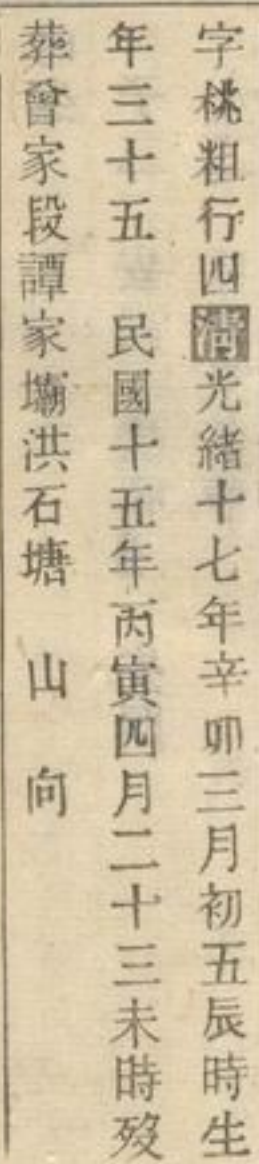 字桃粗行四清光緒十七年辛卯三月初五辰時生
年三十五 民國十五年丙寅四月二十三未時殁
葬曾家段譚家塴洪石塘 山 向